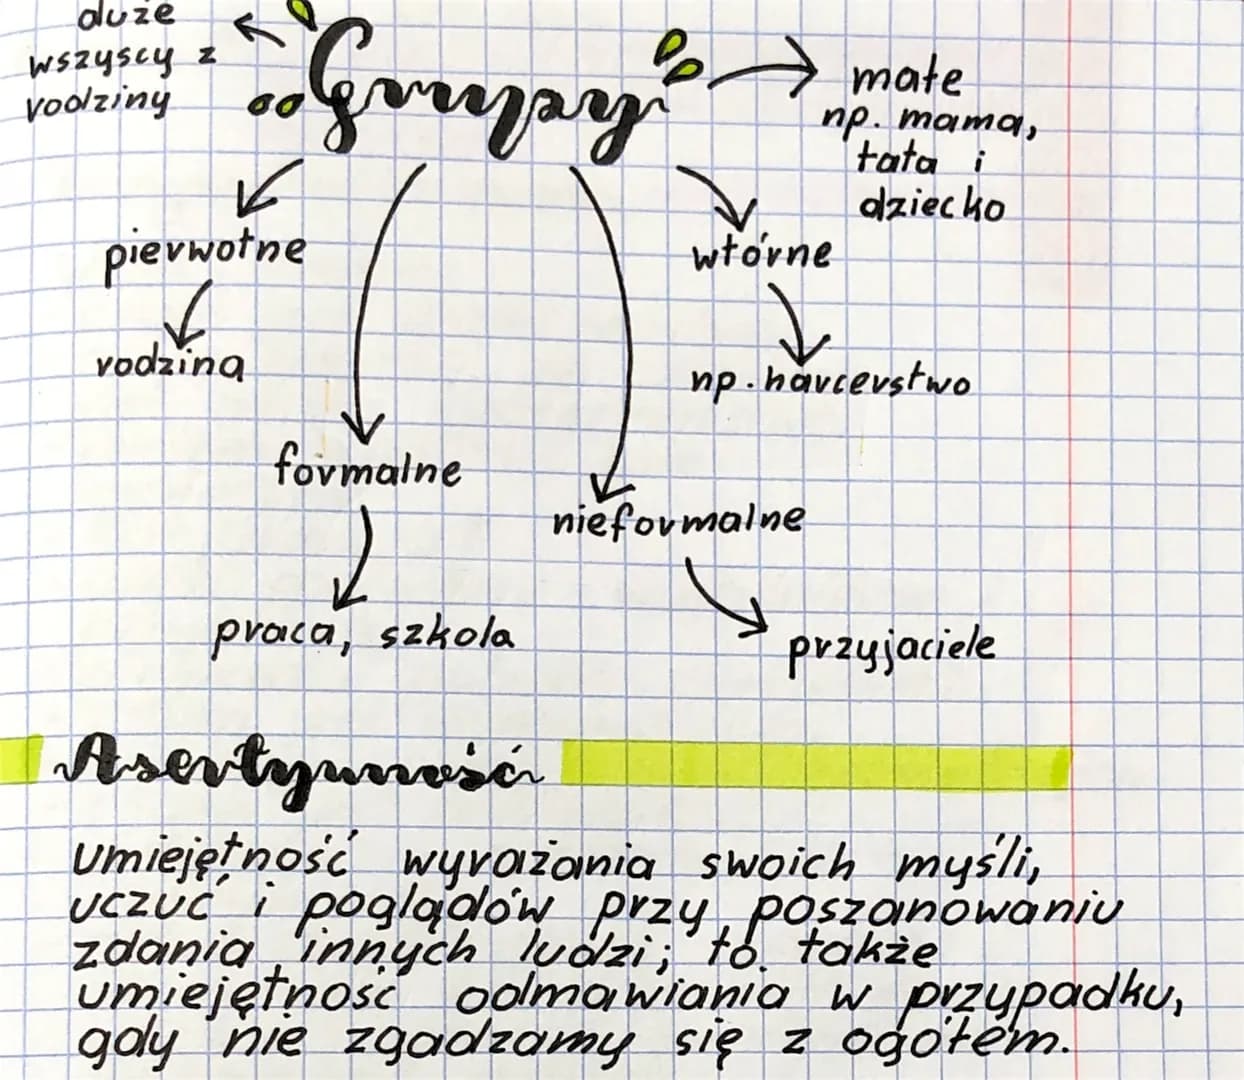 duże
wszyscy z
rodziny
Grupy
małe
np. mama,
tata i
dziecko
pierwotne
rodzina
wtórne
np. harcerstwo
formalne
praca, szkoła
nieformalne
przyjaciele
Asertywność
umiejętność wyrażania swoich myśli,
uczuć i poglądów przy poszanowaniu
zdania innych ludzi; to także
umiejętność odmawiania w przypadku,
gdy nie zgadzamy się z ogółem.